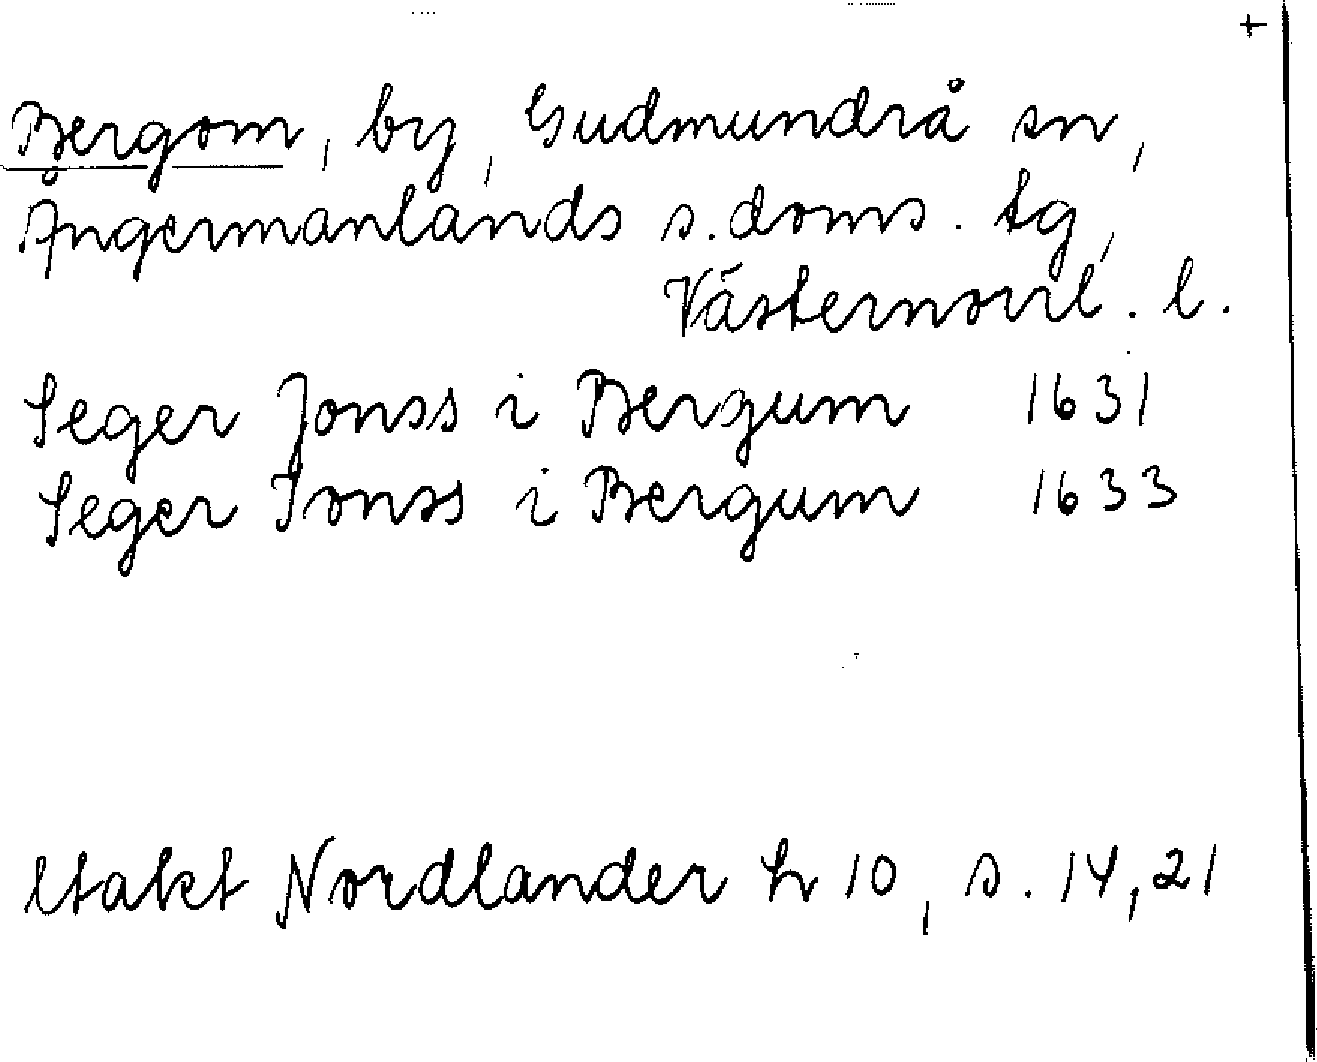 +
Bergom, by, Gudmundrå sn,
Ångermanlands s. doms. tg,
Västernorrl. l.
Seger Jonss i Bergum 1631
Seger Jonss i Bergum 1633
Utakt Nordlander h 10, s. 14, 21